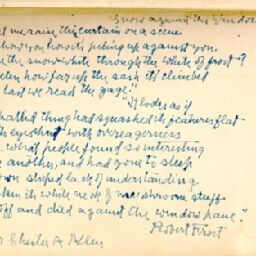 Snow against the Window
me raise this curtain on a scene
show you how it's piling up against you.
the snow-white through the white of frost?
how far up the sash it's climbed
last we read the gage."
"It looks as if
pallid thing had squashed its features flat
its eyes shut with overeagerness
what people found so interesting
another, and had gone to sleep
own stupid lack of understanding,
its white neck of mushroom stuff
off and died against the window pane."
Robert Frost
Chester A